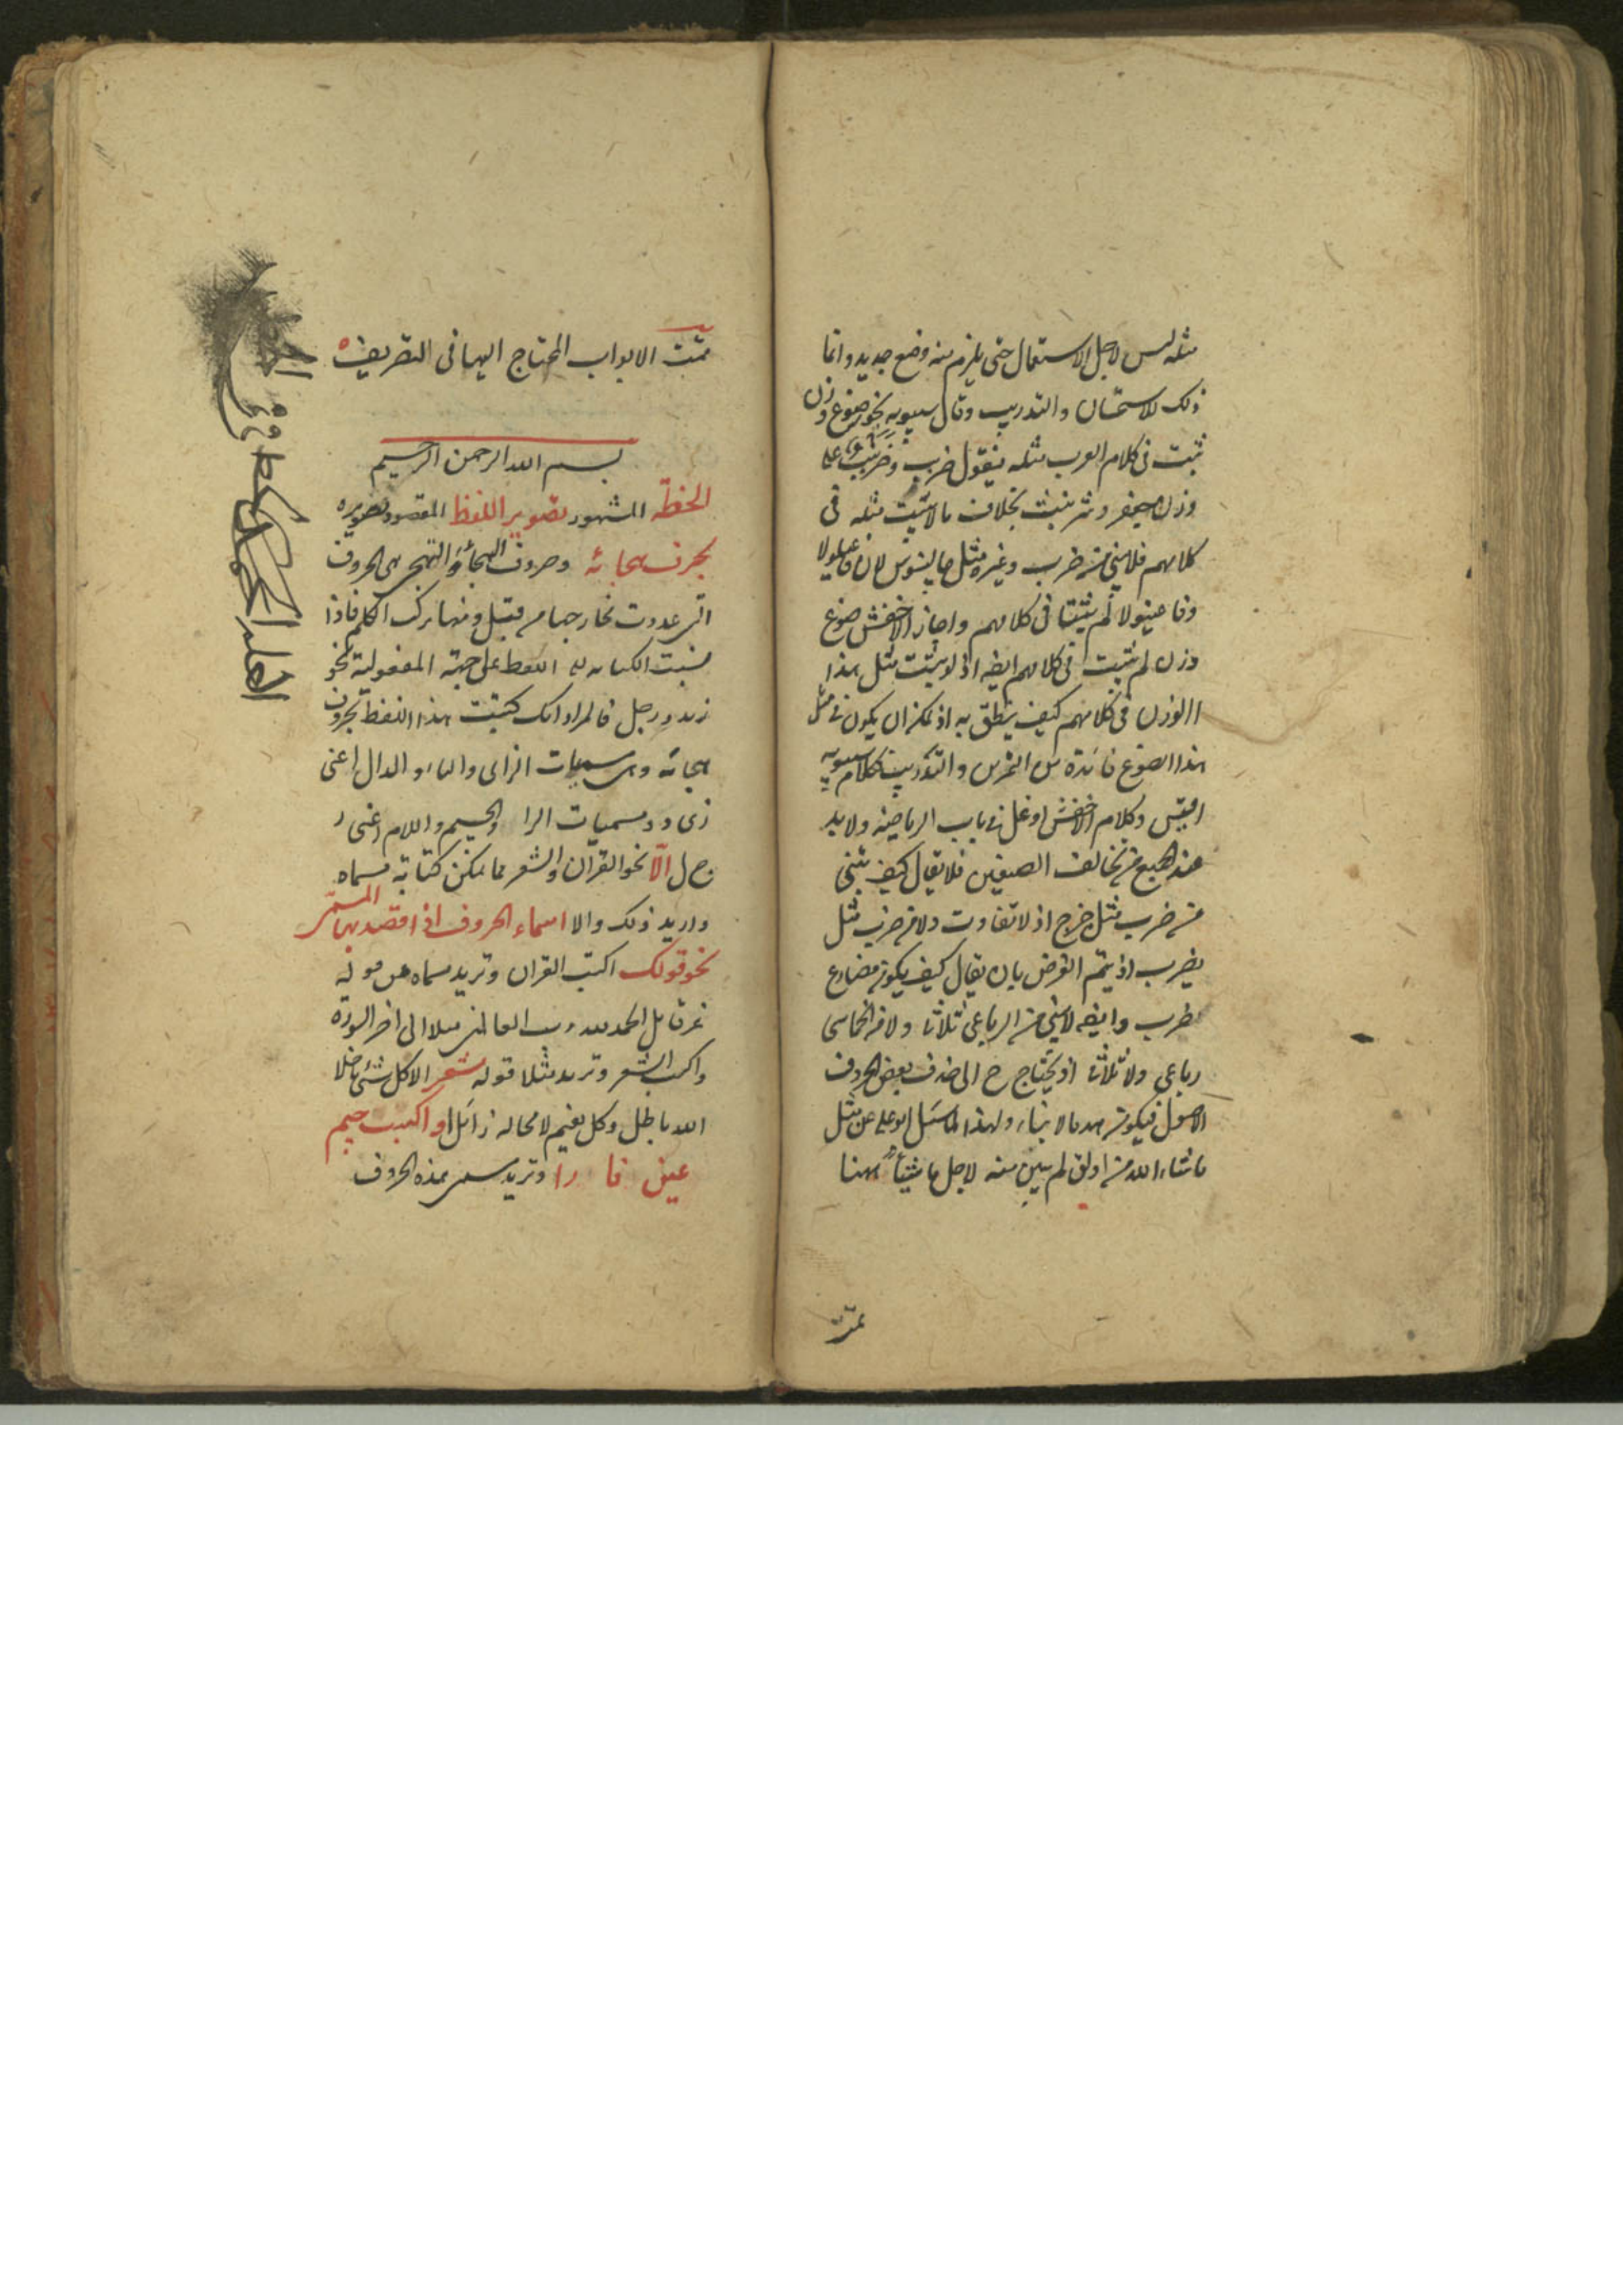 مثله ليس لاجل الاستعمال حتى يلزم منه وضع جديد وانما
ذلك للامتحان والتدريب وقال سيبويه يجوز صوغ وزن
ثبت فى كلام العرب مثله فيقول ضربب وضرنبب على
وزن جعفر وشرنبث بخلاف ما لا يثبت مثله فى
كلامهم فلا يبنى من ضرب وغيره مثل جالينوس لان فاعيلولا
وفاعينولا لم يثبتا فى كلامهم واجاز الاخفش صوغ
وزن لم يثبت فى كلامهم ايضا اذ لو ثبت مثل هذا
الوزن فى كلامهم كيف ينطق به اذ يمكن ان يكون فى مثل
هذا الصوغ فائدة من التمرين والتدريب فكلام سيبويه
اقيس وكلام الاخفش اوغل فى باب الرياضة ولا بد
عند الجميع من تخالف الصيغتين فلا يقال كيف تبنى
من ضرب مثل خرج اذ لا تفاوت ولا من ضرب مثل
يضرب اذ يتم الغرض بان يقال كيف يكون مضارع
ضرب وايضا لا يبنى من الرباعى ثلاثيا ولا من الخماسى
رباعى ولا ثلاثيا اذ يحتاج ح الى حذف بعض الحروف
الاصول فيكون هدما لا بناء ولهذا لما سئل ابو على عن مثل
ما شاء الله من اولق لم يبن منه لاجل ما شيئا ههنا
تمت
تمت الابواب المحتاج اليها فى التصريف
بسم الله الرحمن الرحيم
الخط المشهور تصوير اللفظ المقصود تصويره
بحرف هجائه وحروف الهجاء والتهجى هى الحروف
التى عددت مخارجها من قبل ومنها تركب الكلم فاذا
نسبت الكتابة الى اللفظ على جهة المفعولية نحو
زيد ورجل فالمراد انك كتبت هذا اللفظ بحروف
هجائه وهى مسميات الزاى والياء والدال اعنى
زى د ومسميات الرا والجيم واللام اعنى ر
ج ل الا نحو القرآن والشعر مما يمكن كتابة مسماه
واريد ذلك والا اسماء الحروف اذا قصد بها المسمى
نحو قولك اكتب القران وتريد مسماه من قوله
عز من قائل الحمد لله رب العالمين مثلا الى اخر السورة
واكتب الشعر وتريد مثلا قوله شعر الا كل شئ ما خلا
الله باطل وكل نعيم لا محالة زائل او اكتب جيم
عين فا را وتريد مسمى هذه الحروف